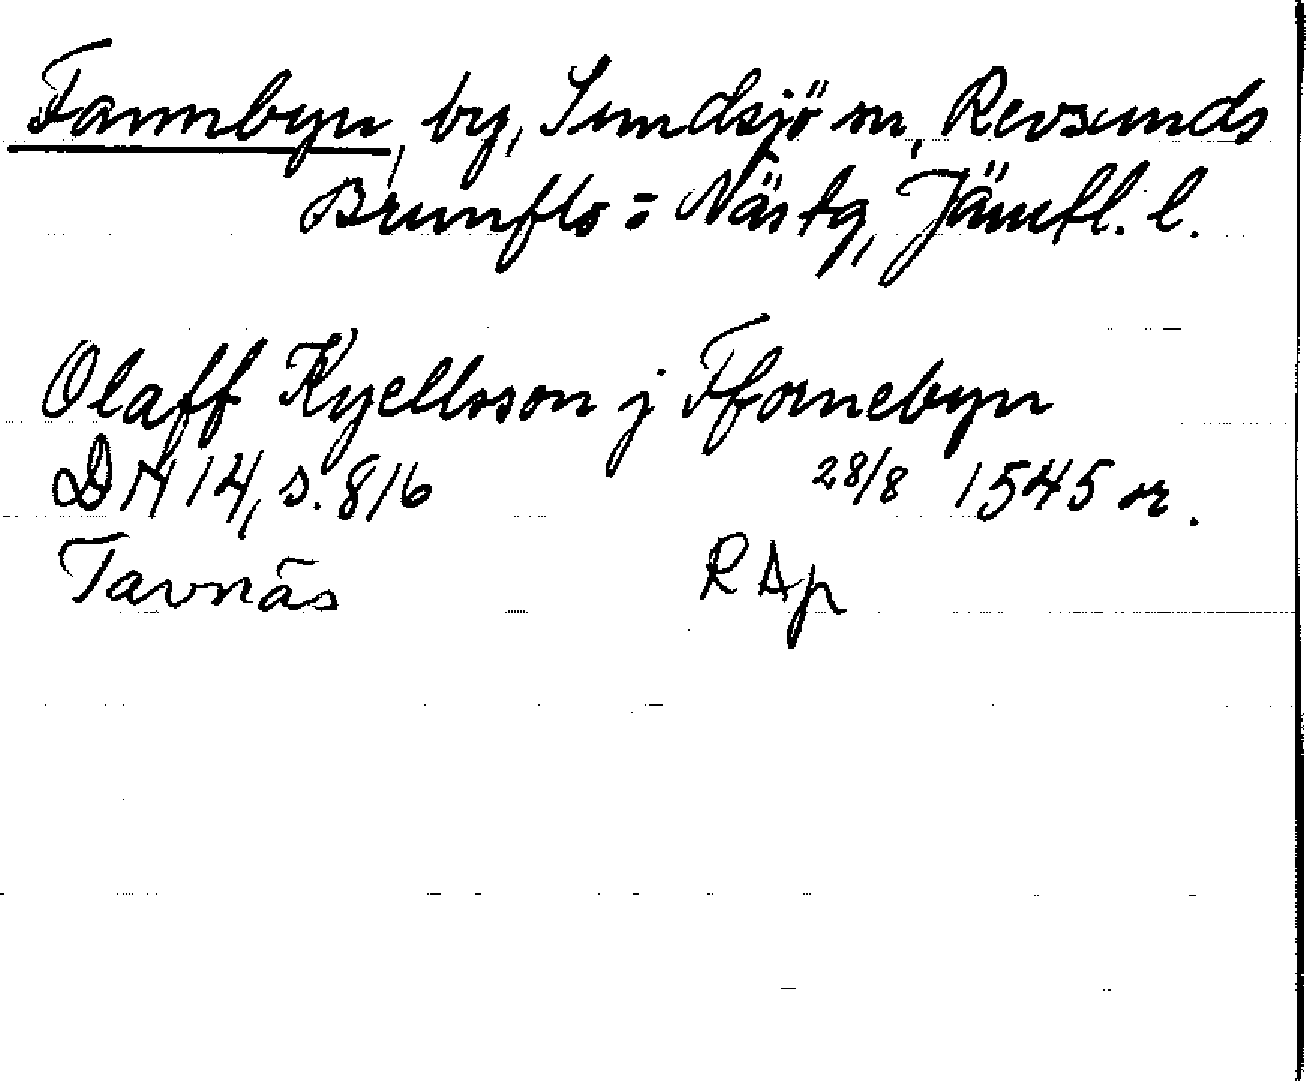 Fannbyn, by, Sundsjö sn, Revsunds
Brunflo = Näs tg, Jämtl. l.
Olaff Kyellsson j Ffornebyn
DN 14, s. 816 28/8 1545 or.
Tavnäs RAp